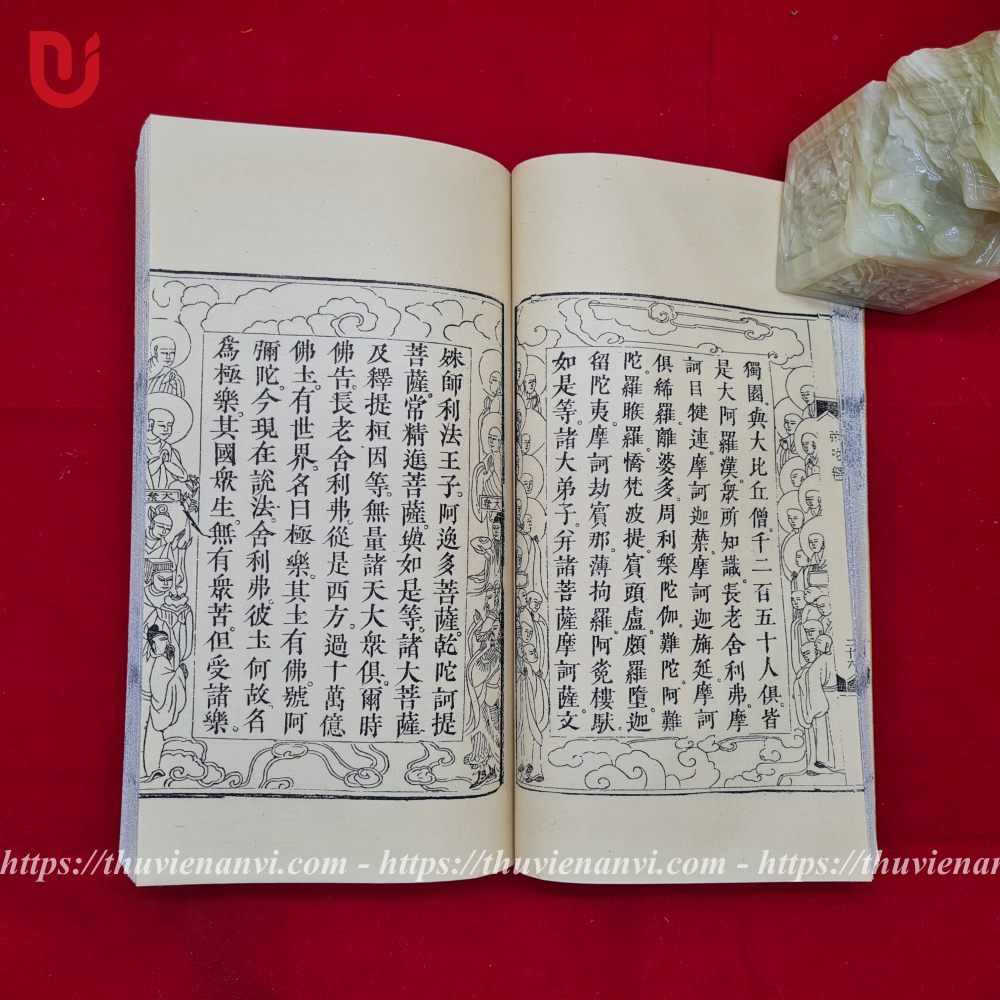 獨園。與大比丘僧。千二百五十人俱。皆
是大阿羅漢。衆所知識。長老舍利弗。摩
訶目犍連。摩訶迦葉。摩訶迦旃延。摩訶
俱絺羅。離婆多。周利槃陀伽。難陀。阿難
陀。羅睺羅。憍梵波提。賓頭盧頗羅墮。迦
留陀夷。摩訶劫賓那。薄拘羅。阿㝹樓馱。
如是等。諸大弟子。幷諸菩薩摩訶薩。文
殊師利法王子。阿逸多菩薩。乾陀訶提
菩薩。常精進菩薩。與如是等。諸大菩薩。
及釋提桓因等。無量諸天大衆俱。爾時
佛告。長老舍利弗。從是西方。過十萬億
佛土。有世界。名曰極樂。其土有佛。號阿
彌陀。今現在說法。舍利弗。彼土何故。名
爲極樂。其國衆生。無有衆苦。但受諸樂。
https://thuvienanvi.com - https://thuvienanvi.com - https://thuvienanv